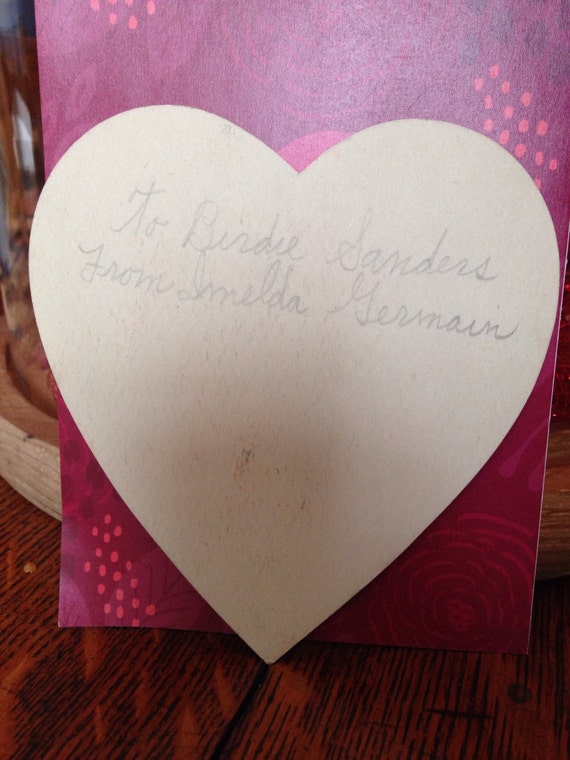 To Birdie Sanders
From Imelda Germain